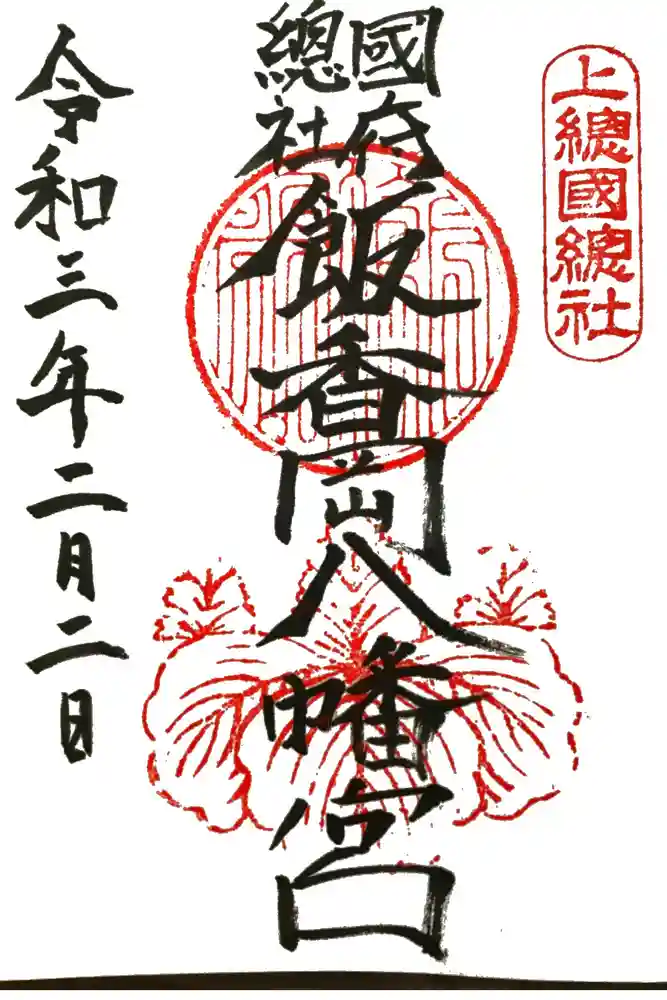 上總國總社
國府
總社
飯香岡八幡宮
令和三年二月二日